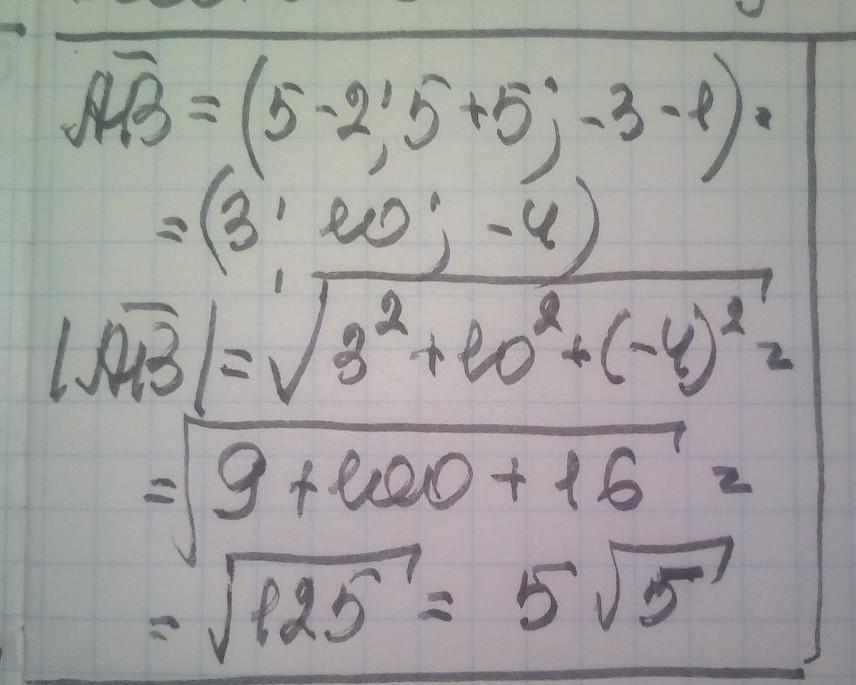 AB̅ = (5-2; 5+5; -3-1) =
= (3; 10; -4)
|AB̅| = √(3² + 10² + (-4)²) =
= √(9 + 100 + 16) =
= √125 = 5√5